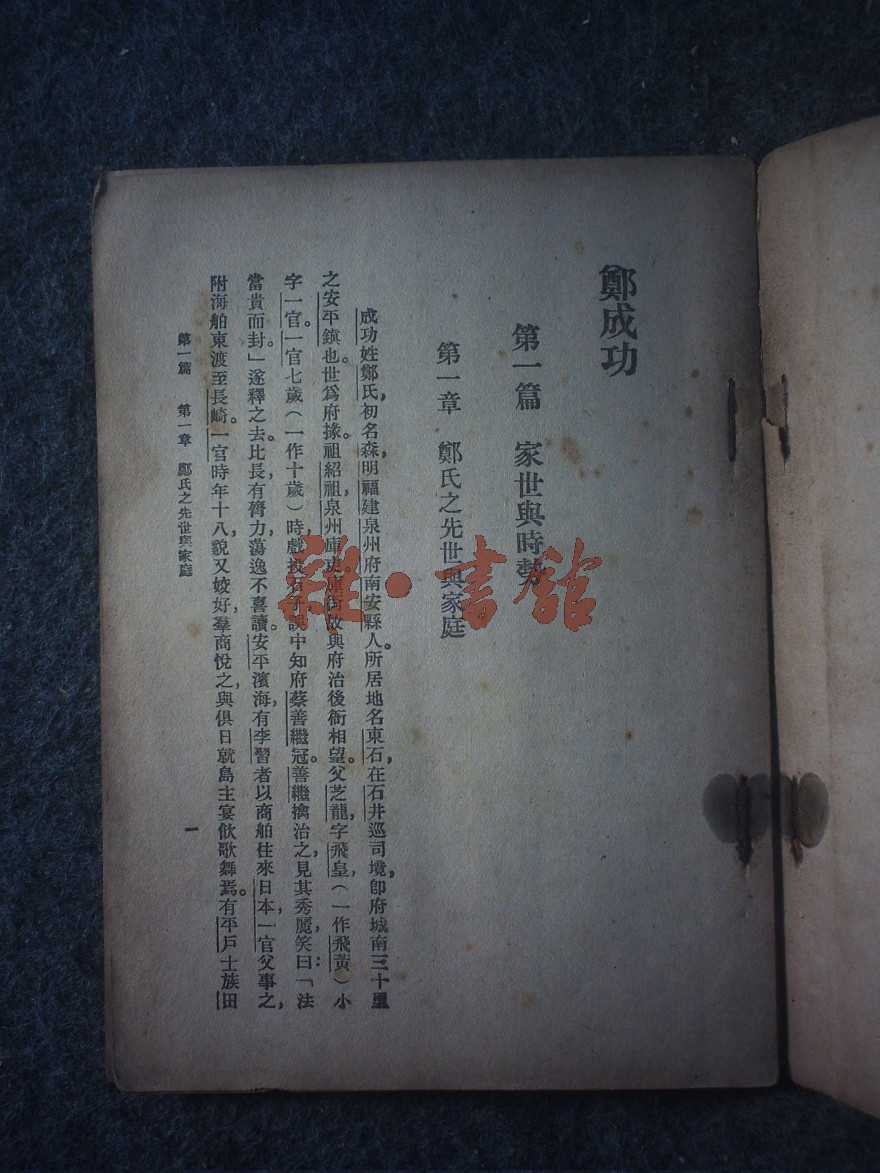 鄭成功
第一篇　家世與時勢
第一章　鄭氏之先世與家庭
成功姓鄭氏，初名森，明福建泉州府南安縣人。所居地名東石，在石井巡司境，卽府城南三十里
之安平鎮也。世爲府掾。祖紹祖，泉州庫吏，故與府治後衙相望。父芝龍，字飛皇，（一作飛黃）小
字一官。一官七歲（一作十歲）時，戲投石子，誤中知府蔡善繼冠。善繼擒治之，見其秀麗，笑曰：「法
當貴而封」遂釋之去。比長有膂力，蕩逸不喜讀。安平濱海，有李習者以商舶往來日本，一官父事之，
附海舶東渡至長崎。一官時年十八，貌又姣好，羣商悅之，與俱日就島主宴飲歌舞焉。有平戶士族田
第一篇　第一章　鄭氏之先世與家庭
一
雜·書館